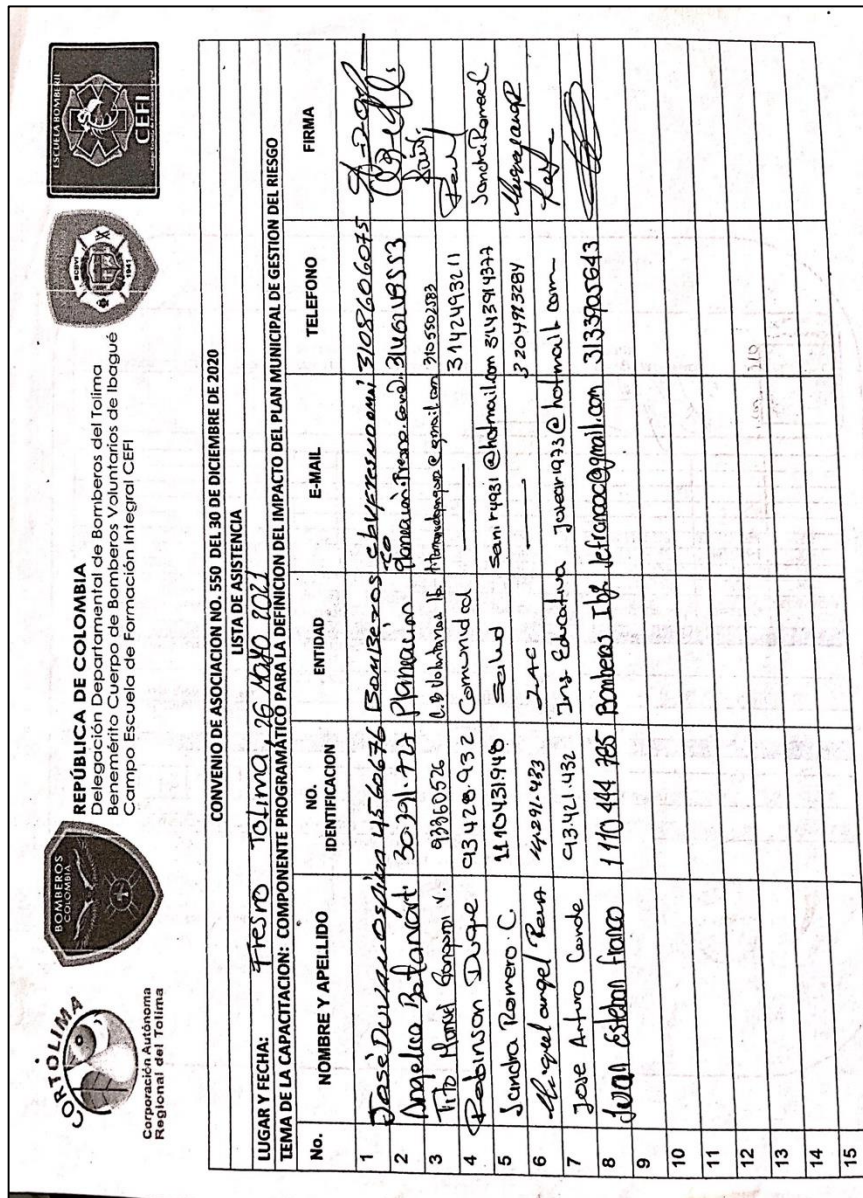 CORTOLIMA
Corporación Autónoma
Regional del Tolima
BOMBEROS
COLOMBIA
REPÚBLICA DE COLOMBIA
Delegación Departamental de Bomberos del Tolima
Benemérito Cuerpo de Bomberos Voluntarios de Ibagué
Campo Escuela de Formación Integral CEFI
BCBVI
1941
ESCUELA BOMBERIL
CEFI
CONVENIO DE ASOCIACION NO. 550 DEL 30 DE DICIEMBRE DE 2020
LISTA DE ASISTENCIA
LUGAR Y FECHA: Fresno Tolima 26 Mayo 2021
TEMA DE LA CAPACITACION: COMPONENTE PROGRAMÁTICO PARA LA DEFINICION DEL IMPACTO DEL PLAN MUNICIPAL DE GESTION DEL RIESGO
No. NOMBRE Y APELLIDO NO. IDENTIFICACION ENTIDAD E-MAIL TELEFONO FIRMA
1 José Ospina 4560676 Bomberos 3108606075
2 Angelica Betancurt 30.391.727 Planeacion
3 Tito Manuel 93360526 3105502583
4 Robinson Duque 93428.932 Comunidad — 3142493211
5 Sandra Romero C 1110431948 Salud @hotmail.com 3143914377 Sandra Romero C
6 Miguel angel 14.291.433 JAC — 3204973284 Miguel angel
7 Jose Arturo Conde 93.421.432 Ins Educativa josear1973@hotmail.com —
8 Juan Esteban Franco 1110 444 785 Bomberos Ibg. jefrancoc@gmail.com 3133905643
9
10
11
12
13
14
15